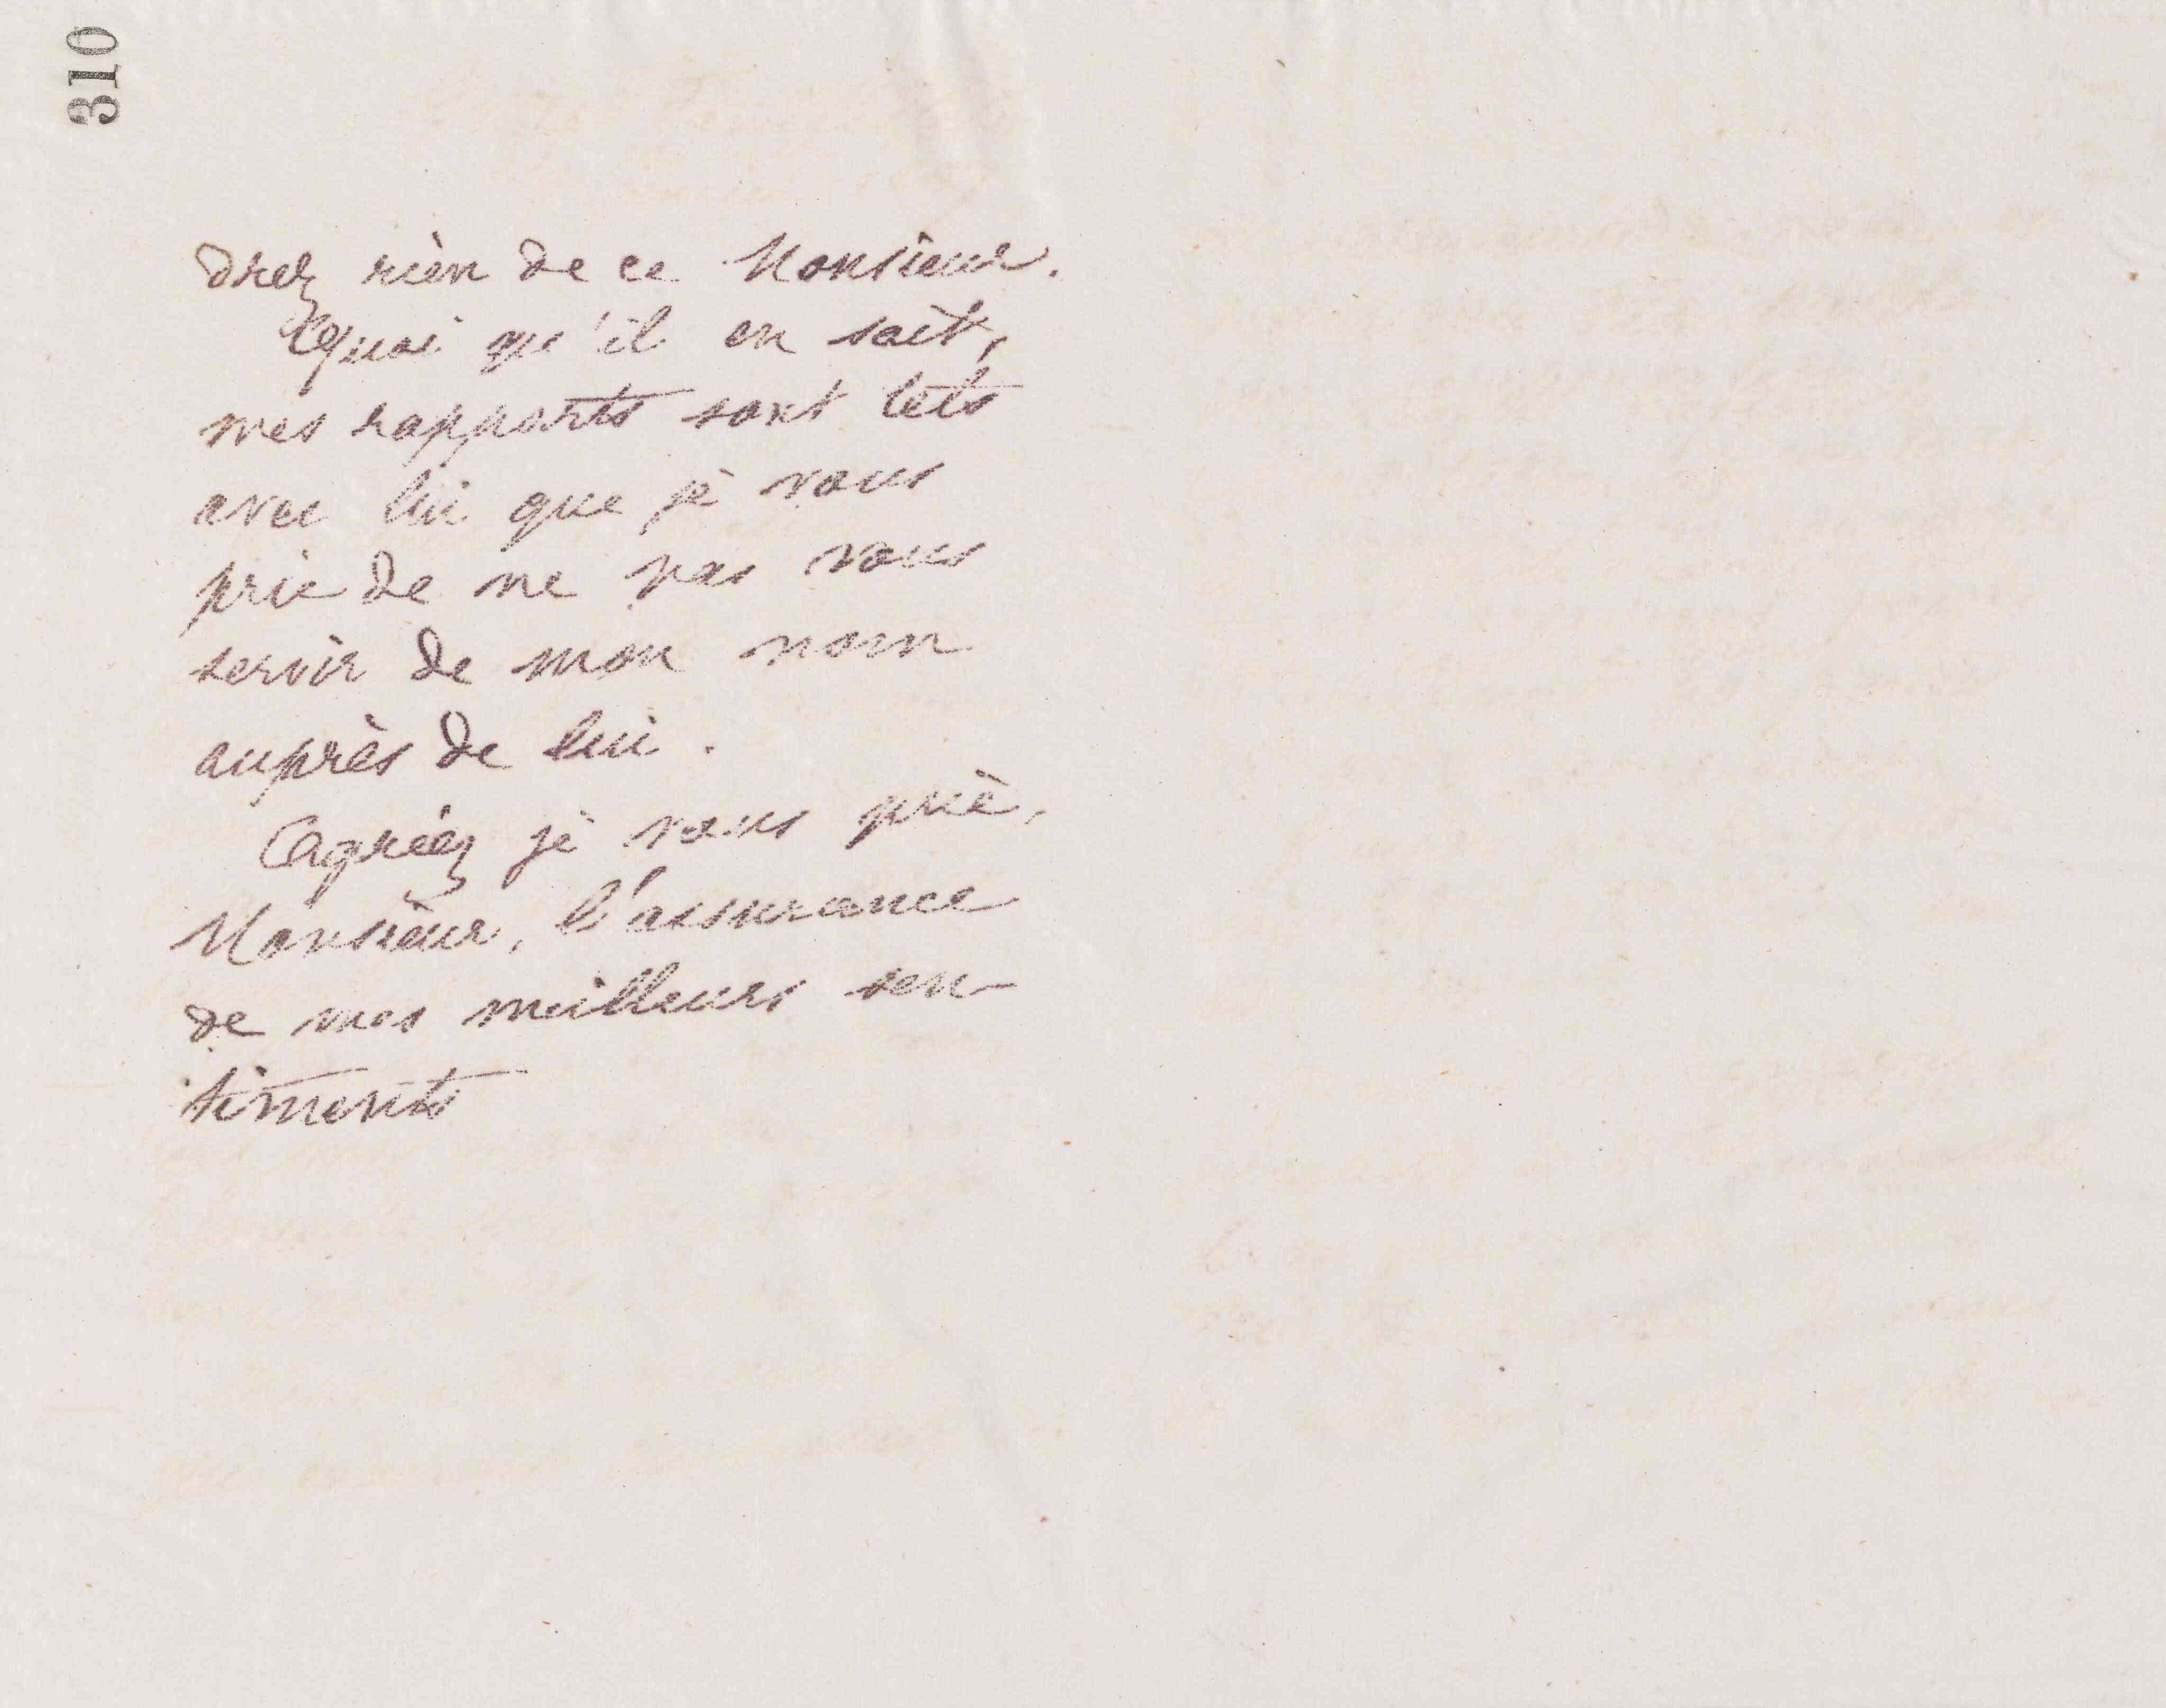 310
drez rien de ce Monsieur.
Quoi qu'il en soit,
mes rapports sont tels
avec lui que je vous
prie de ne pas vous
servir de mon nom
auprès de lui.
Agréez je vous prie,
Monsieur, l'assurance
de mes meilleurs sen-
timents